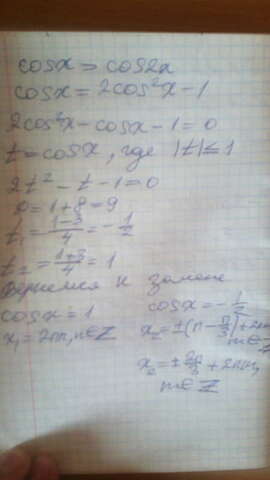 cosx = cos2x
cosx = 2cos²x - 1
2cos²x - cosx - 1 = 0
t = cosx, где |t| ≤ 1
2t² - t - 1 = 0
D = 1 + 8 = 9
t₁ = (1-3)/4 = -1/2
t₂ = (1+3)/4 = 1
Вернемся к замене
cosx = 1
x₁ = 2πn, n∈Z
cosx = -1/2
x₂ = ±(π - π/3) + 2πm
m∈Z
x₂ = ± 2π/3 + 2πm,
m∈Z